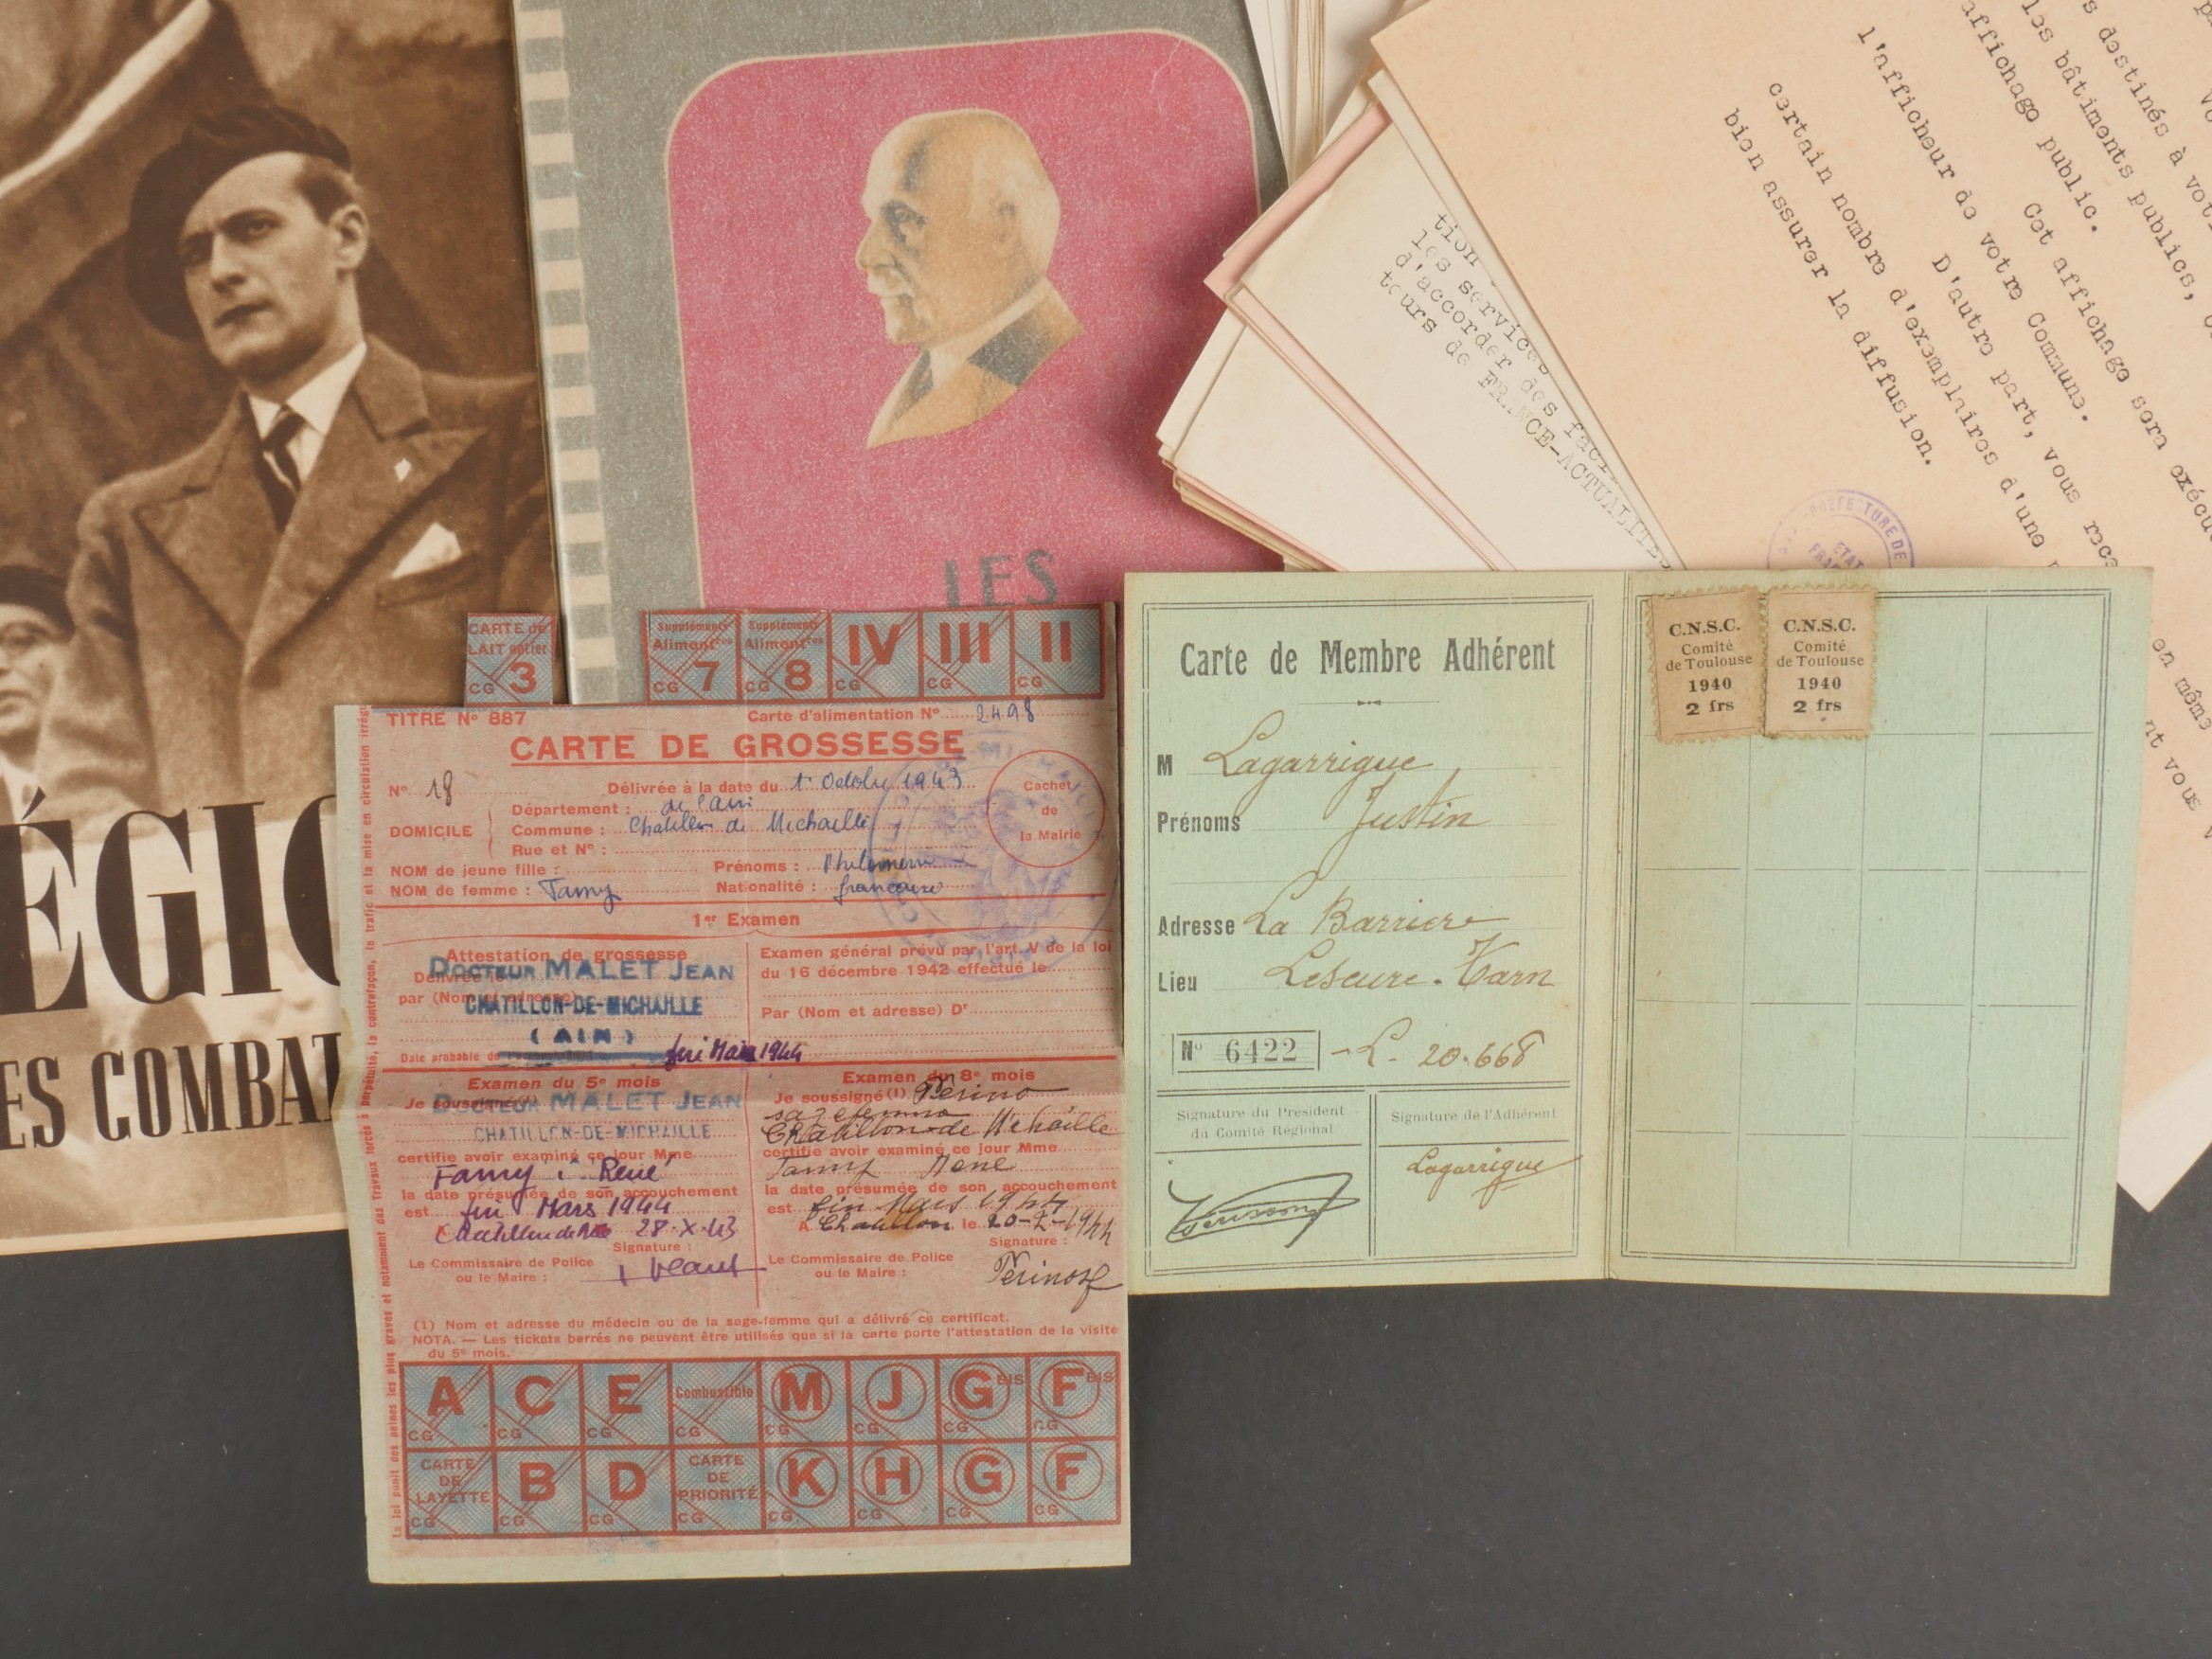 ÉGIO
ES COMBAT
LES
tion
les services
d'accorder des
tours de FRANCE-ACTUALITES
destinés à
les bâtiments publics,
affichage public.
Cet affichage sera
l'afficheur de votre Commune.
D'autre part, vous
certain nombre d'exemplaires d'une
bien assurer la diffusion.
en même
nt vous
PREFECTURE DE
ETAT
CARTE de
LAIT entier
CG 3
Suppléments
Aliment^res
CG 7
Suppléments
Aliment^res
CG 8
IV
CG
III
CG
II
CG
TITRE N° 887
Carte d'alimentation N° 2498
CARTE DE GROSSESSE
N° 18
Délivrée à la date du 1° Octobre 1943
Cachet
de
la Mairie
DOMICILE
Département : de l'Ain
Commune : Chatillon de Michaille
Rue et N° :
NOM de jeune fille :
Prénoms :
NOM de femme : Famy
Nationalité : française
1er Examen
Attestation de grossesse
Délivrée le
par (Nom et adresse)
DOCTEUR MALET JEAN
CHATILLON-DE-MICHAILLE
(AIN)
Date probable de
fin Mars 1944
Examen général prévu par l'art. V de la loi
du 16 décembre 1942 effectué le
Par (Nom et adresse) Dr
Examen du 5e mois
Je soussigné (1)
DOCTEUR MALET JEAN
CHATILLON-DE-MICHAILLE
certifie avoir examiné ce jour Mme
Famy René
la date présumée de son accouchement
est fin Mars 1944
28.X.43
Signature :
Le Commissaire de Police
ou le Maire :
Examen du 8e mois
Je soussigné (1)
sage femme
Chatillon de Michaille
certifie avoir examiné ce jour Mme
Famy René
la date présumée de son accouchement
est fin Mars 1944
A Chatillon, le 20-2-1944
Signature :
Le Commissaire de Police
ou le Maire :
(1) Nom et adresse du médecin ou de la sage-femme qui a délivré ce certificat.
NOTA. — Les tickets barrés ne peuvent être utilisés que si la carte porte l'attestation de la visite
du 5e mois.
A
CG
C
CG
E
CG
Combustible
CG
M
CG
J
CG
G BIS
CG
F BIS
CG
CARTE
DE
LAYETTE
CG
B
CG
D
CG
CARTE
DE
PRIORITÉ
CG
K
CG
H
CG
G
CG
F
CG
La loi punit des peines les plus graves et notamment des travaux forcés à perpétuité, la contrefaçon, le trafic et la mise en circulation irrégu
Carte de Membre Adhérent
M Lagarrigue
Prénoms Justin
Adresse La Barriere
Lieu Lescure. Tarn
N° 6422 - L. 20.668
Signature du President
du Comité Régional
Signature de l'Adhérent
Lagarrigue
C.N.S.C.
Comité
de Toulouse
1940
2 frs
C.N.S.C.
Comité
de Toulouse
1940
2 frs